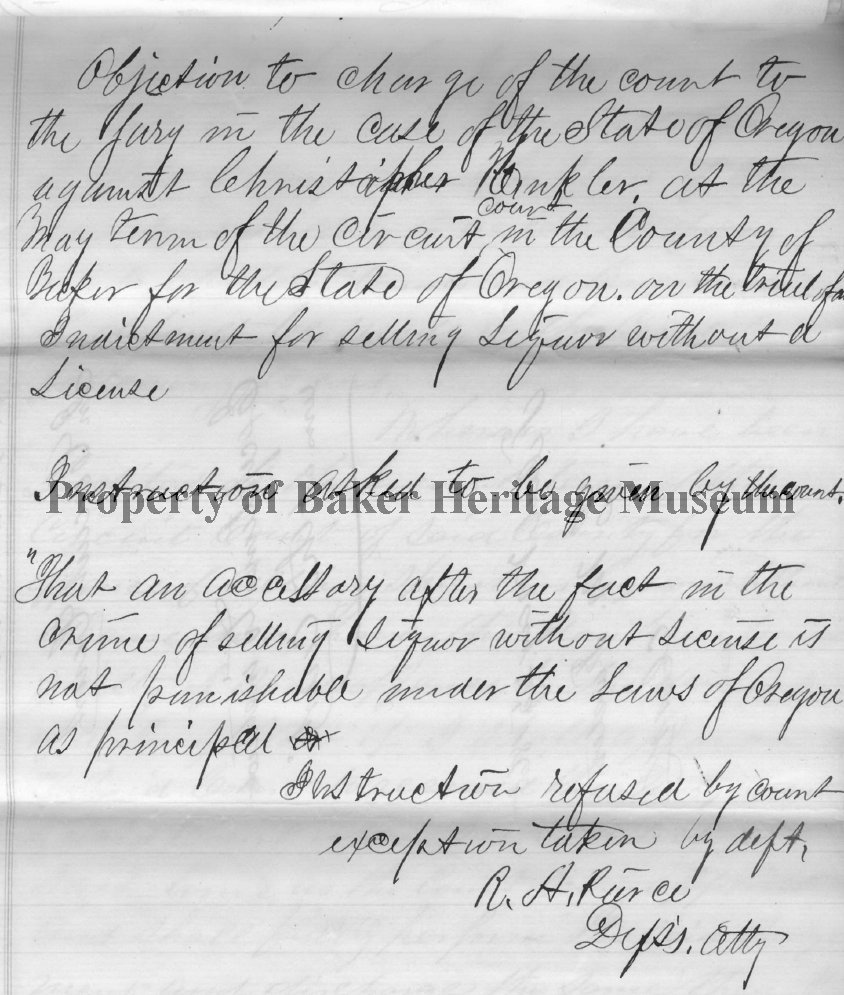 Objection to charge of the court to
the Jury in the case of the State of Oregon
against Christopher Winkler, at the
May term of the circuit court in the County of
Baker for the State of Oregon. on the trial of an
Indictment for selling Liquor without a
License
Instruction asked to be given by the court.
Property of Baker Heritage Museum
"That an accessory after the fact in the
crime of selling Liquor without License is
not punishable under the Laws of Oregon
as principal
Instruction refused by court
exception taken by deft,
R. A. Pierce
Deft's. Atty